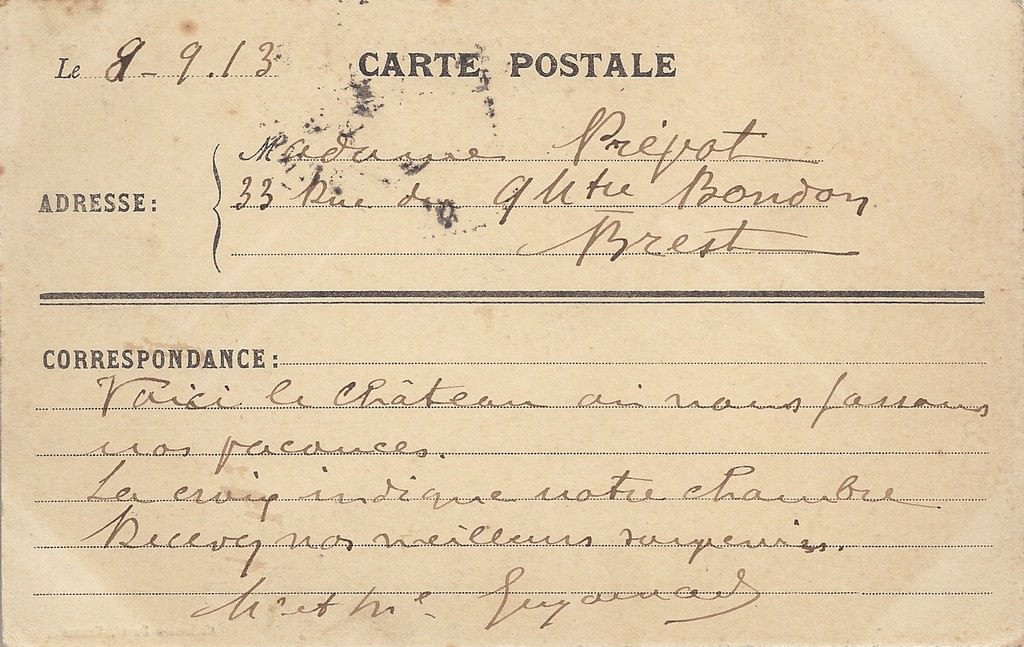 Le 8-9.13 CARTE POSTALE
Madame Prépot
ADRESSE: 33 Rue du 9 Mtre Bourdon
Brest
CORRESPONDANCE:
Voici le château où nous passons
nos vacances.
La croix indique notre chambre
Recevez nos meilleurs souvenirs.
Mr et Me Guyomard